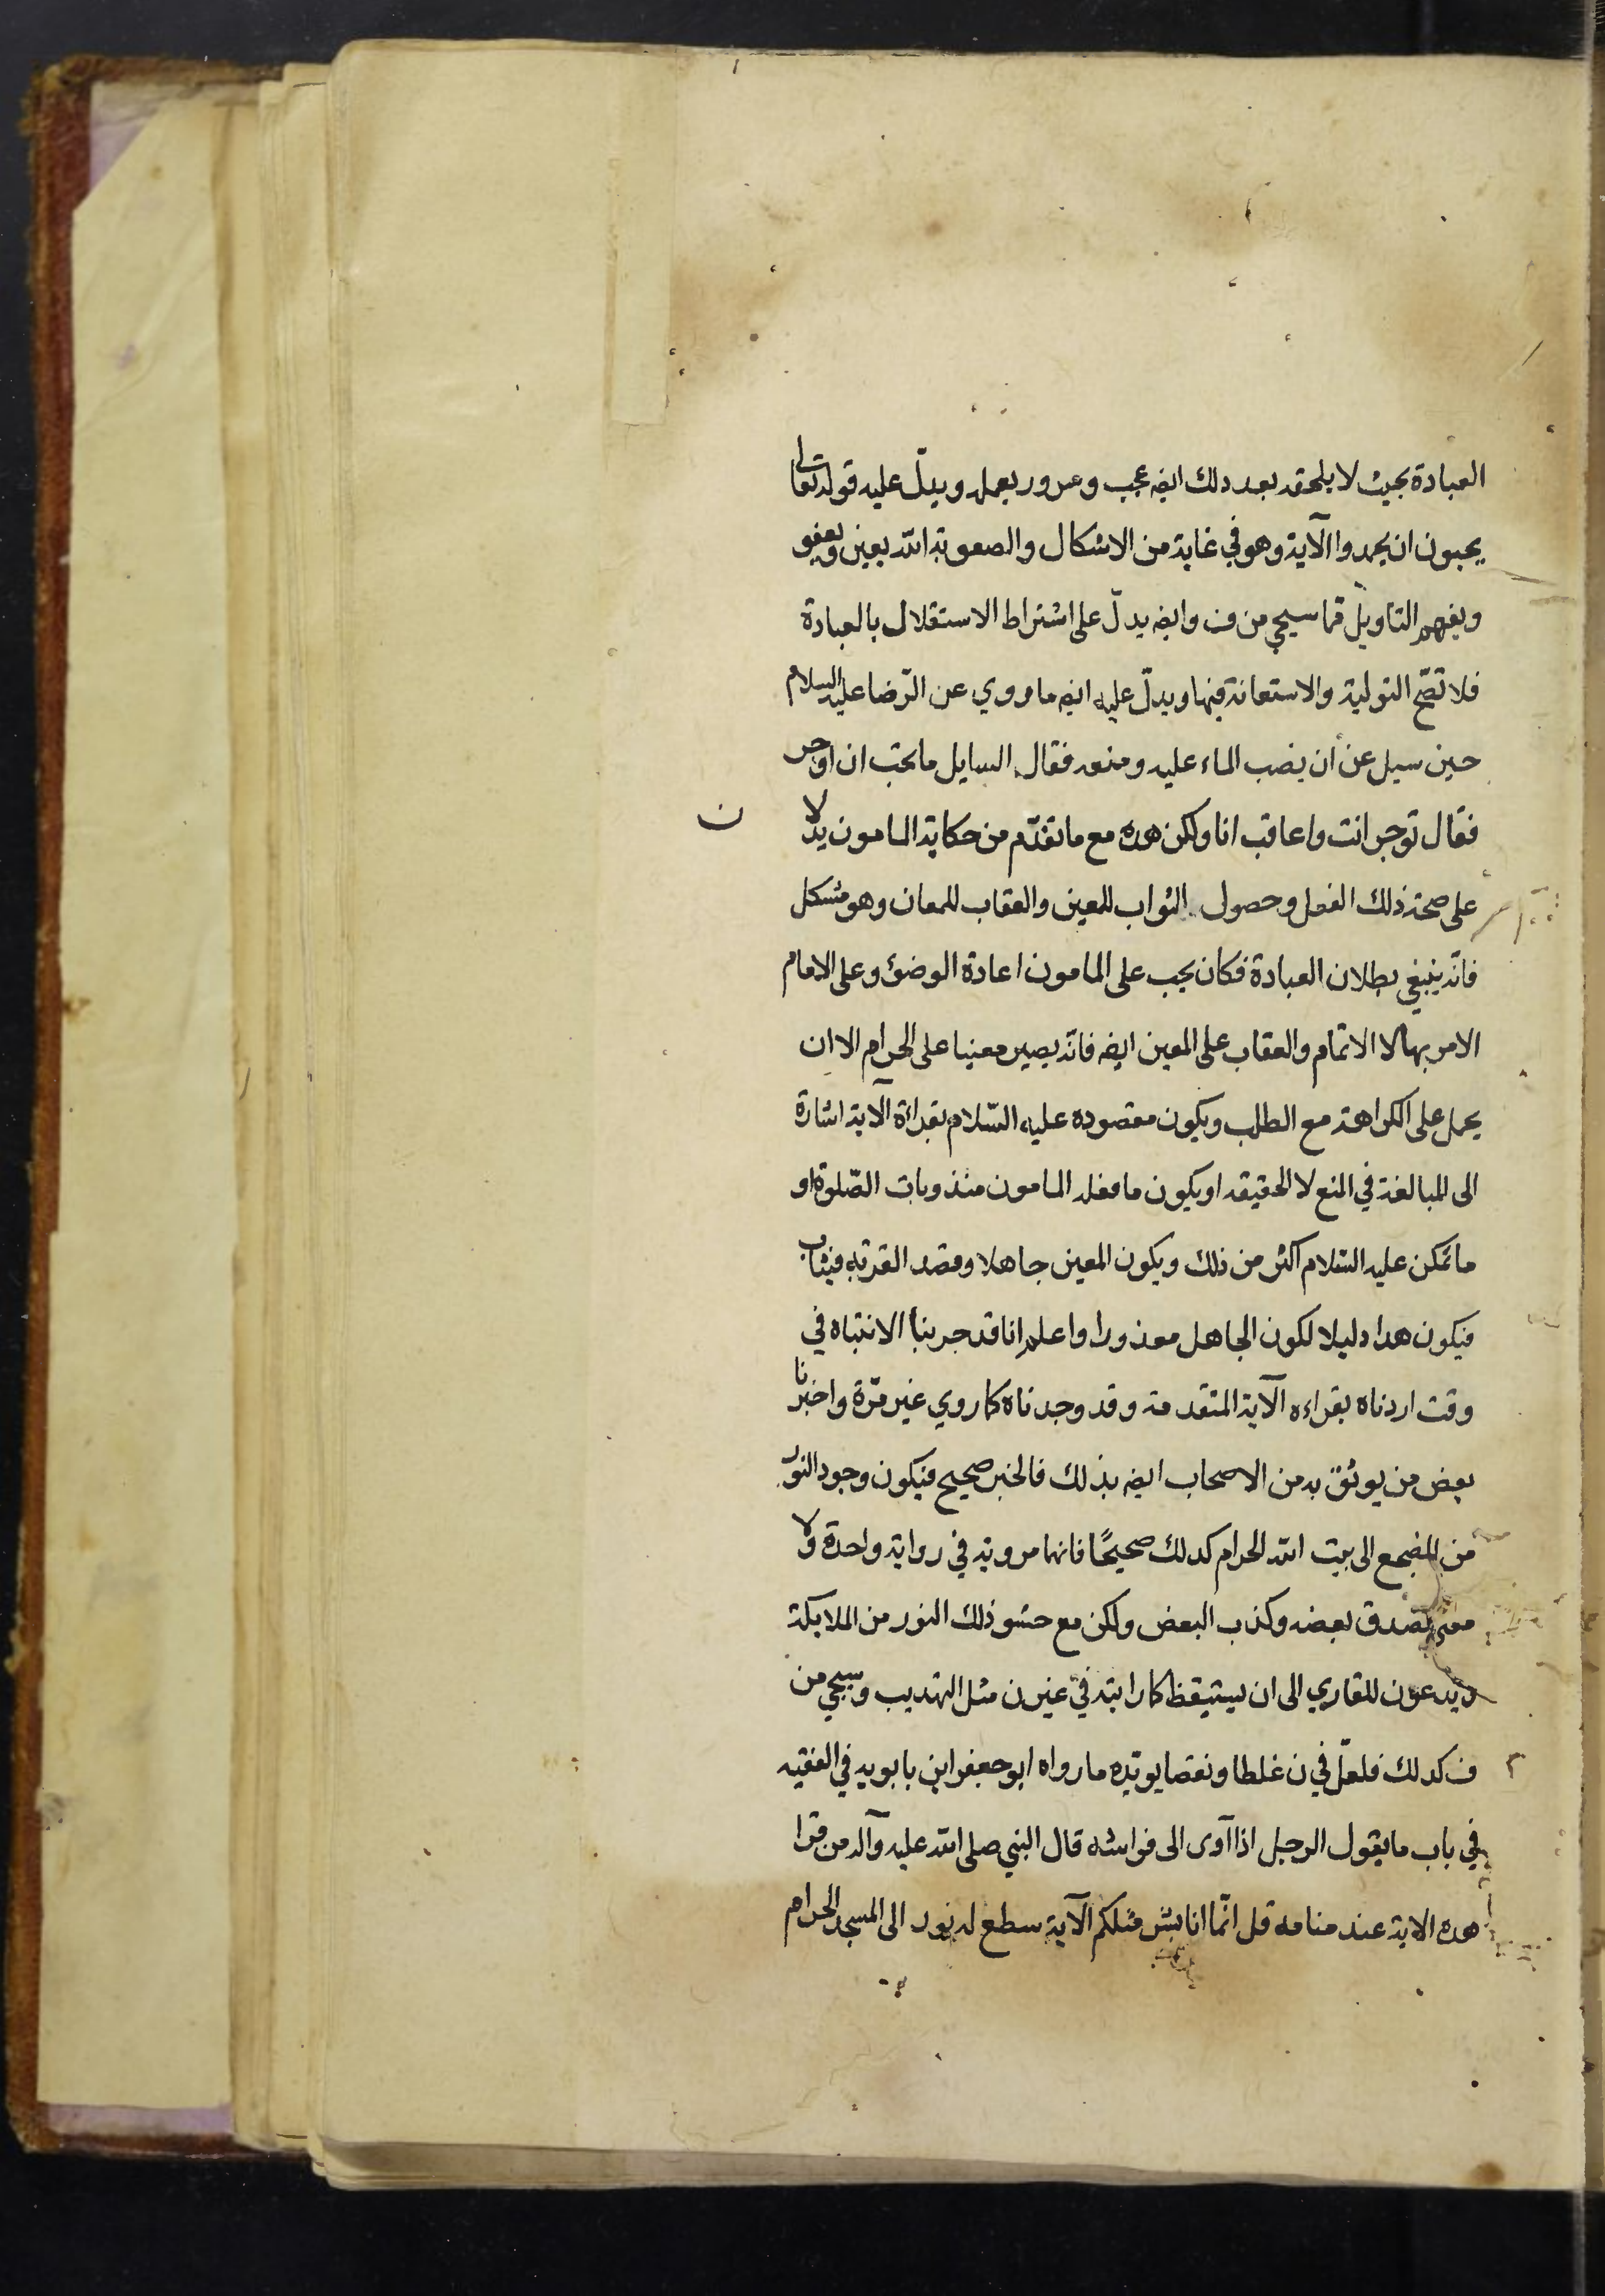 العبادة بحيث لا يلحقه بعد ذلك ايضه عجب وغرور بعمله ويدلّ عليه قوله تعالى
يحبون ان يحمدوا الآية وهو في غاية من الاشكال والصعوبة الله يعين ويعفو
ويفهم التاويل مما سيجي من ف وايضه يدلّ على اشتراط الاستقلال بالعبادة
فلا تصّح التولية والاستعانة فيها ويدلّ عليه ايضه ما مروي عن الرّضا عليه السلام
حين سيل عن ان يصب الماء عليه ومنعه فقال السايل ما تحب ان اوجر
فقال توجر انت واعاقب انا ولكن هده مع ما تقدّم من حكاية المامون يدلّا
ن
على صحة ذلك الفعل وحصول الثواب للمعين والعقاب للمعان وهو مشكل
فانّه ينبغي بطلان العبادة فكان يجب على المامون اعادة الوضوء وعلى الامام
الامر بها لا الاتمام والعقاب على المعين ايضه فانّه يصير معنيا على الحرام الا ان
يحمل على الكراهة مع الطلب ويكون مقصوده عليه السّلام بقراءة الآية اشارة
الى المبالغة في المنع لا الحقيقه او يكون ما فعله المامون مندوبات الصّلوة او
ما تمكن عليه السّلام اكثر من ذلك ويكون المعين جاهلا وقصد القربة فيثاب
فيكون هدا دليلا لكون الجاهل معذورا واعلم انا قد جربنا الانتباه في
وقت اردناه بقراءه الآية المتقدمة وقد وجدناه كما روي غير مرّة واخبرنا
بعض من يوثق به من الاصحاب ايضه بذلك فالخبر صحيح فيكون وجود النوّر
من المضجع الى بيت الله الحرام كدلك صحيحًا فانهما مروية في رواية واحدة ولا
معنى لصدق بعضه وكذب البعض ولكن مع حشو ذلك النور من الملايكة
ويدعون للقاري الى ان يستيقظ كما رايته في غير ن مثل التهديب وسيجي من
ف كدلك فلعلّ في ن غلطا ونقصا يويّده ما رواه ابو جعفر ابن بابويه في الفقيه
في باب ما يقول الرجل اذا آوى الى فراشه قال النبي صلى الله عليه وآله من قرا
هده الاية عند منامه قل انّما انا بشر مثلكم الآية سطع له نور الى المسجد الحرام